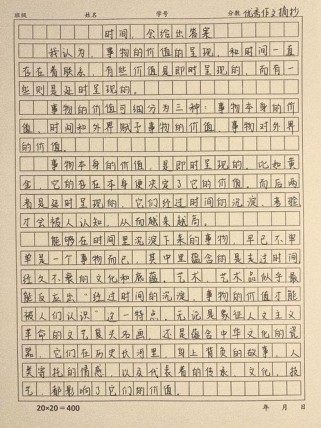 班级 姓名 学号 分数 优秀作文摘抄
时间,会给出答案
我认为,事物的价值的呈现,和时间一直
存在着联系,有些价值是即时呈现的,而有一
些则是延时呈现的。
事物的价值可细分为三种:事物本身的价
值,时间和外界赋予事物的价值,事物对外界
的价值。
事物本身的价值,是即时呈现的。比如黄
金,它的存在本身便决定了它的价值。而后两
者是延时呈现的,它们经过时间的沉淀,考验
才会被人认知,从而越来越高。
能够在时间里沉淀下来的事物,早已不单
单是一个事物而已,其中里蕴含的是走过时间
经久不衰的文化和底蕴。艺术,艺术品似乎最
能反应出“经过时间的沉淀,事物的价值才能
被人们认识”这一特点。无论是象征人文主义
革命的文艺复兴名画,还是蕴含中华文化的瓷
器,它们在历史长河里,身上背负的故事,人
类寄托的情感,以及代表着的传承,文化,技
艺,都影响了它们的价值。
20×20=400 年 月 日